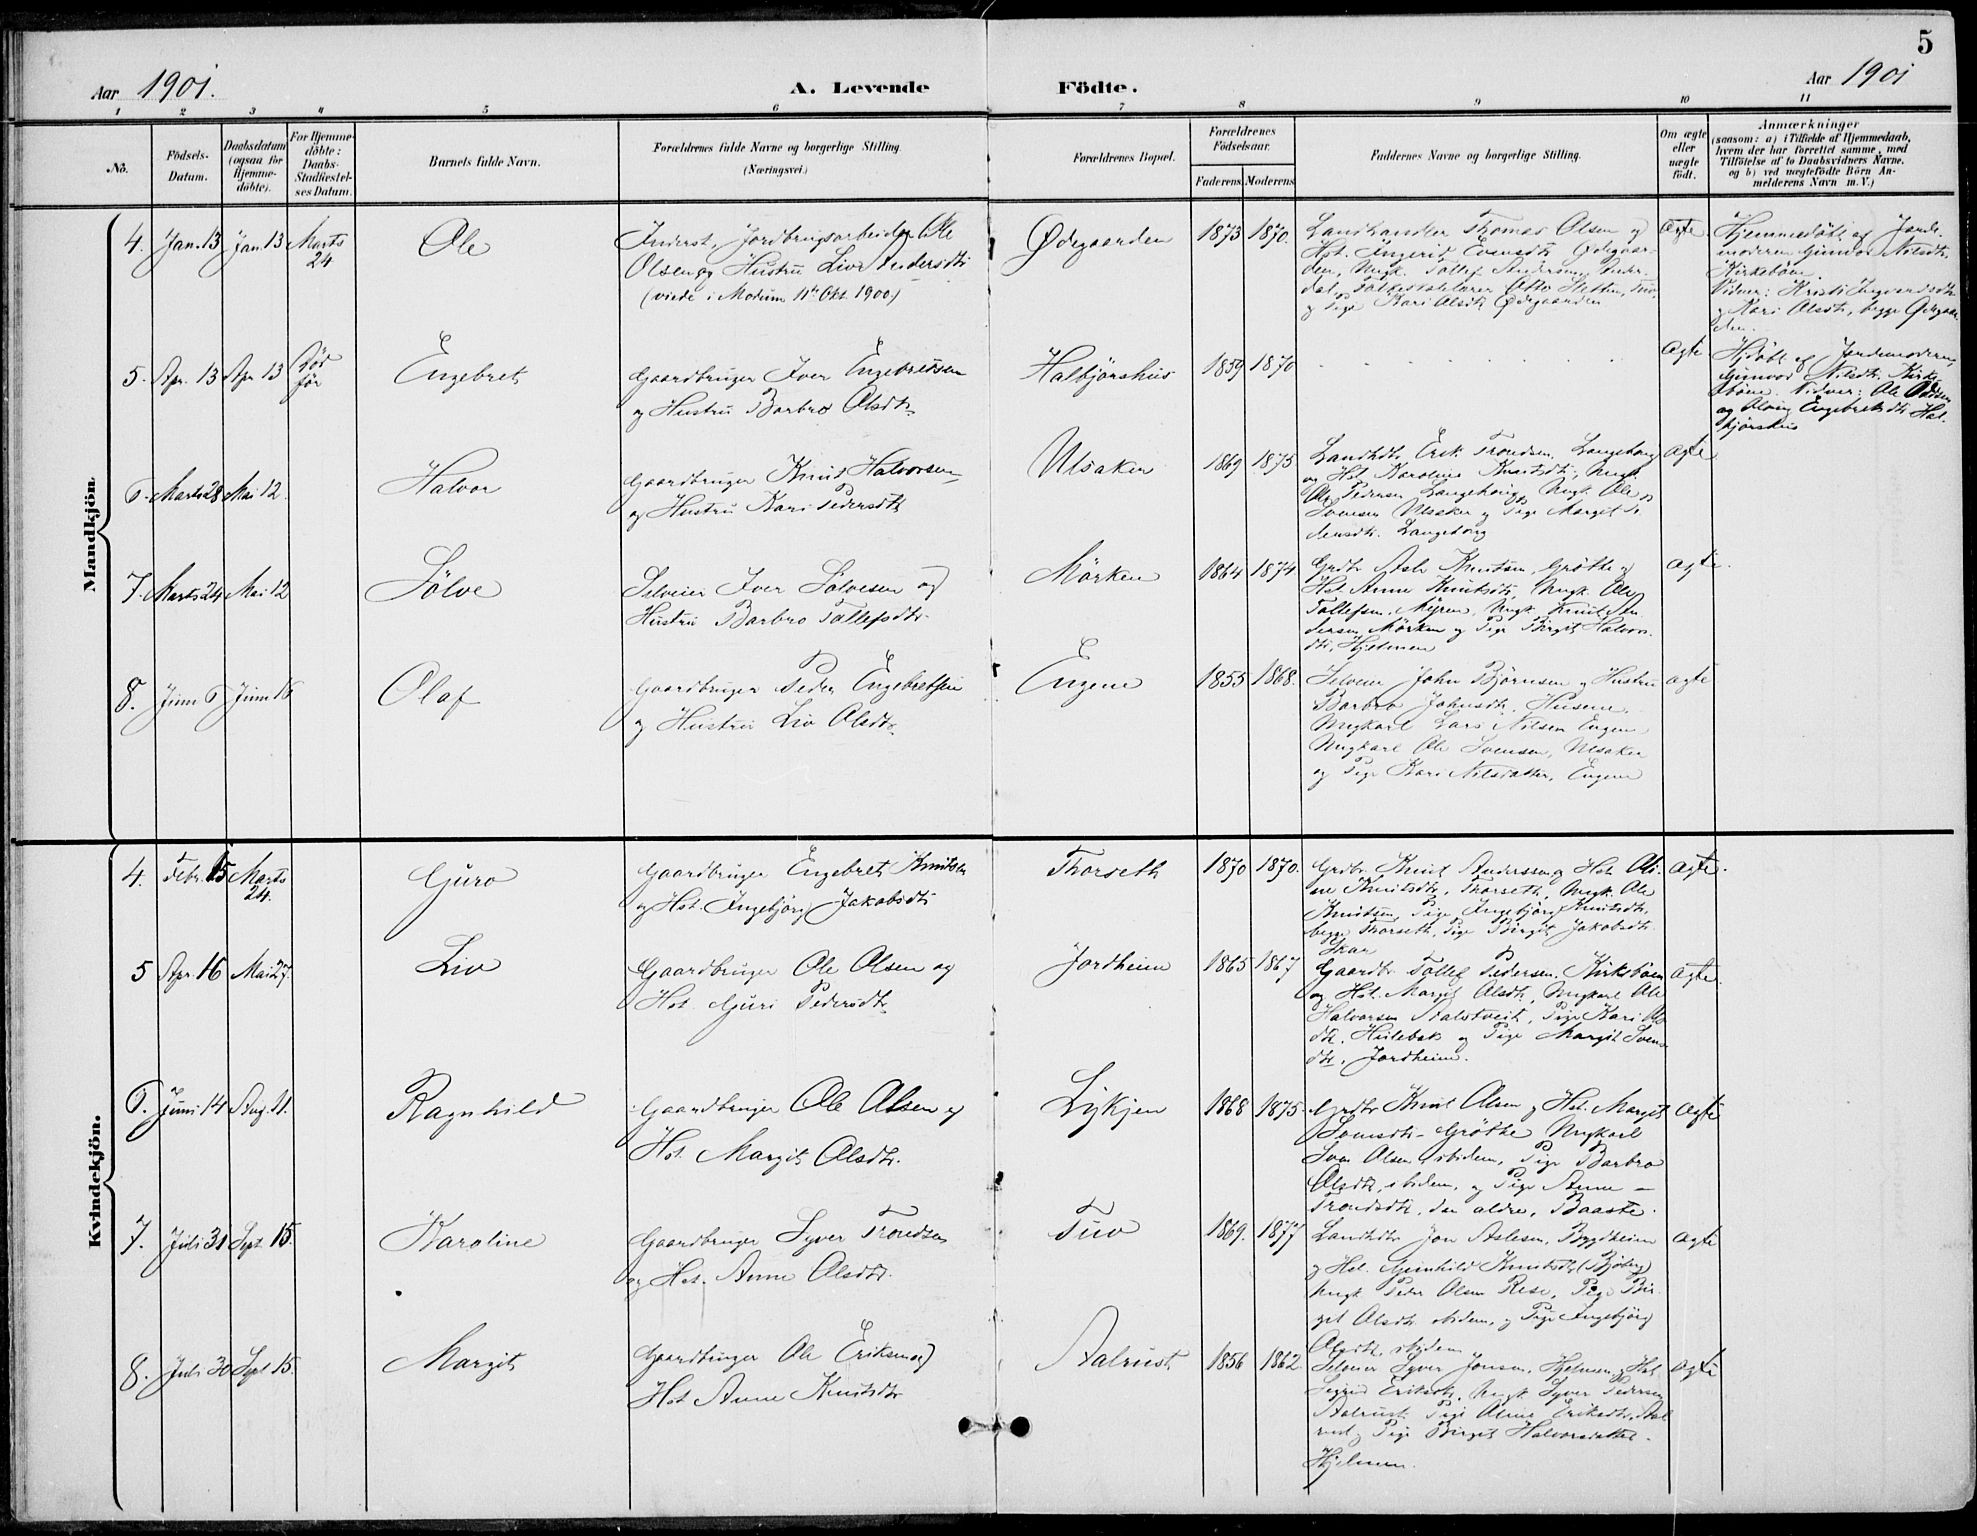 5
Aar 1901.
A. Levende Födte.
Aar 1901
1 2 3 4 5 6 7 8 9 10 11
No.
Födsels-
Datum.
Daabsdatum
(ogsaa for
Hjemme-
döbte).
For Hjemme-
döbte:
Daabs-
Stadfæstel-
ses Datum.
Barnets fulde Navn.
Forældrenes fulde Navne og borgerlige Stilling.
(Næringsvei.)
Forældrenes Bopæl.
Forældrenes
Födselsaar.
Faderens. Moderens
Faddernes Navne og borgerlige Stilling.
Om ægte
eller
uægte
födt.
Anmærkninger
(saasom: a) i Tilfælde af Hjemmedaab,
hvem der har forrettet samme, med
Tilföielse af to Daabsvidners Navne.
og b) ved uægtefödte Börn An-
melderens Navn m. V.)
Mandkjön.
4. Jan. 13 Jan. 13 Marts
24
Ole
Inderst, Jordbrugsarbeider Ole
Olsen og Hustru Liv Andersdtr
(viede i Modum 11te Okt. 1900.)
Ødegaarden
1873 1870.
Landhandler Thomas Olsen og
Hst. Ingerid Evensdtr Ødegaar-
den, Ungk. Tollef Andersen
Folkeskolelærer Otto
og Pige Kari Olsdtr Ødegaarden
Ægte
Hjemmedöbt af Jorde-
moderen Gunvor Nilsdtr.
Kirkeböen.
Vidner: Kristi Ingvardsdtr
og Kari Olsdtr, begge Ødegaar-
den.
5. Apr. 13 Apr 13 Död
för
Engebret
Gaardbruger Iver Engebretsen
og Hustru Barbro Olsdtr.
Halbjörshus
1859 1870
Ægte
Hjdöbt af Jordemoderen,
Gunvor Nilsdtr. Kirke-
böen. Vidner: Ole
og Engebretsdtr Hal-
björshus
6. Marts 28 Mai 12.
Halvor
Gaardbruger Knud Halvorsen
og Hustru Kari Pedersdtr
Ulsaker
1869 1875
Landhdlr. Erik Trondsen, Langehaug
og Hst. Karoline Knutsdtr, Ungk.
Ole Pedersen Langehaug, Ungk. Ole
Svensen Ulsaker og Pige Margit Pe-
dersdtr. Langehaug
Ægte
7. Marts 24 Mai 12
Sölve
Selveier Iver Sölvesen og
Hustru Barbro Tollefsdtr.
Mörken
1864 1874
Grdbr Asle Knutsen, Gröthe og
Hst Anne Knutsdtr, Ungk. Ole
Tollefsen, Myren, Ungk. Knut
Mörken og Pige Birgit Halvors-
dtr, Hjelmen
Ægte.
8. Juni 6 Juni 16
Olaf
Gaardbruger Peder Engebretsen
og Hustru Liv Olsdtr.
Engene
1855 1868.
Selveier John Björnsen og Hustru
Barbro Johnsdtr, Husene.
Ungkarl Lars Nilsen Engene
Ungkarl Ole Svensen, Ulsaker
og Pige Kari Nilsdatter, Engene
Ægte
Kvindekjön.
4. Febr. 15 Marts
24.
Guro
Gaardbruger Engebret Knutsen
og Hst. Ingebjörg Jakobsdtr
Thorseth
1870 1870.
Grdbr. Knut Anderssen og Hst. Ole-
ne Knutsdtr, Thorseth, Ungk. Ole
Knutsen, Pige Ingebjörg Knutsdtr,
begge Thorseth, Pige Birgit Jakobsdtr.
Skar
Ægte.
5 Apr. 16 Mai 27.
Liv
Gaardbruger Ole Olsen og
Hst. Guri Pedersdtr.
Jordheim
1865 1867
Gaardbr. Tollef Pedersen. Kirkeböen
og Hst. Margit Olsdtr, Ungkarl Ole
Halvorsen, Pige Kari Ols-
dtr, og Pige Margit Svens-
dtr, Jordheim.
Ægte.
6. Juni 14 Aug. 11.
Ragnhild
Gaardbruger Ole Olsen og
Hst. Margit Olsdtr.
Lykjen
1868 1875.
Grdbr Knut Olsen og Hst. Margit
Svensdtr. Gröthe Ungkarl
Sven Olsen, ibidem, Pige Barbro
Olsdtr, ibidem, og Pige Anne
Trondsdtr, den ældre, Baaste.
Ægte
7. Juli 31 Sept 15.
Karoline
Gaardbruger Syver Trondsen
og Hst. Anne Olsdtr.
Tuv
1869. 1877
Landhdlr Jon Aslesen, Bygdheim
og Hst. Gunhild Knutsdtr (Bjöberg)
Ungk Peder Olsen Rese, Pige Bir-
git Olsdtr ibidem, og Pige Ingebjörg
Olsdtr, ibidem
Ægte
8. Juli 30 Sept 15.
Margit
Gaardbruger Ole Eriksen og
Hst Anne Knutsdtr
Aalrust
1856 1862
Selveier Syver Jonsen, Hjelmen og Hst
Sigrid Eriksdtr, Ungk Syver Pedersen
Aalrust. Pige Eriksdtr, Aal-
rust og Pige Birgit Halvorsdatter
Hjelmen.
Ægte